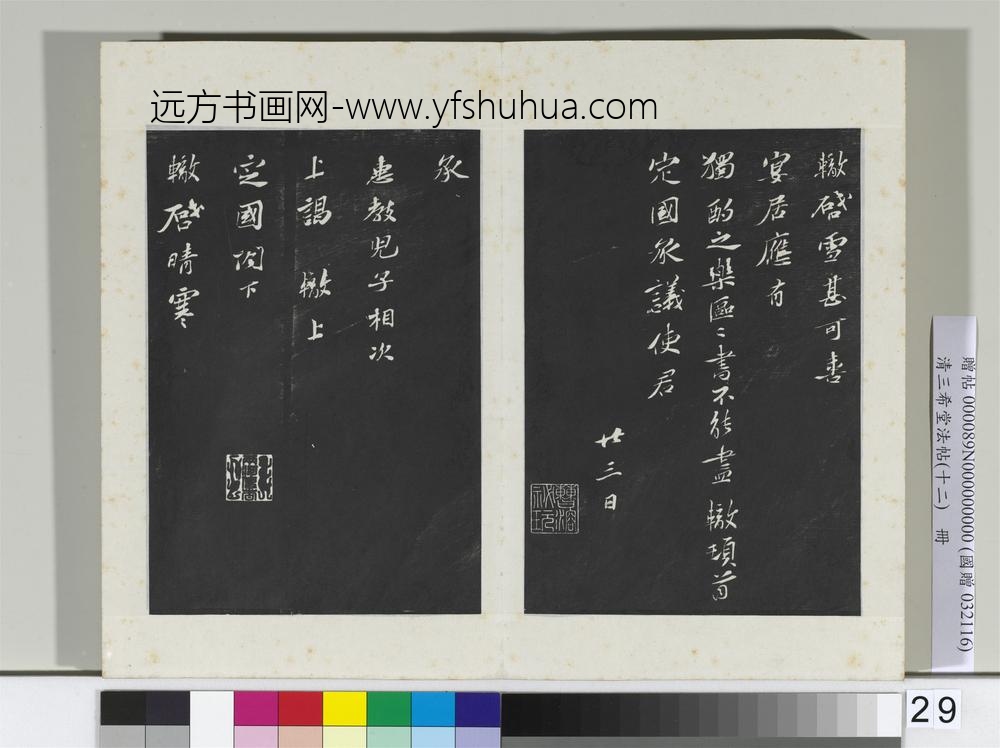 远方书画网-www.yfshuhua.com
轍啓雪甚可喜
宴居應有
獨酌之樂區〻書不能盡 轍頓首
定國承議使君
廿三日
承
惠教兒子相次
上謁 轍上
定國閤下
轍啓晴寒
贈帖 000089N000000000 (國贈 032116)
清三希堂法帖(十二) 冊
29